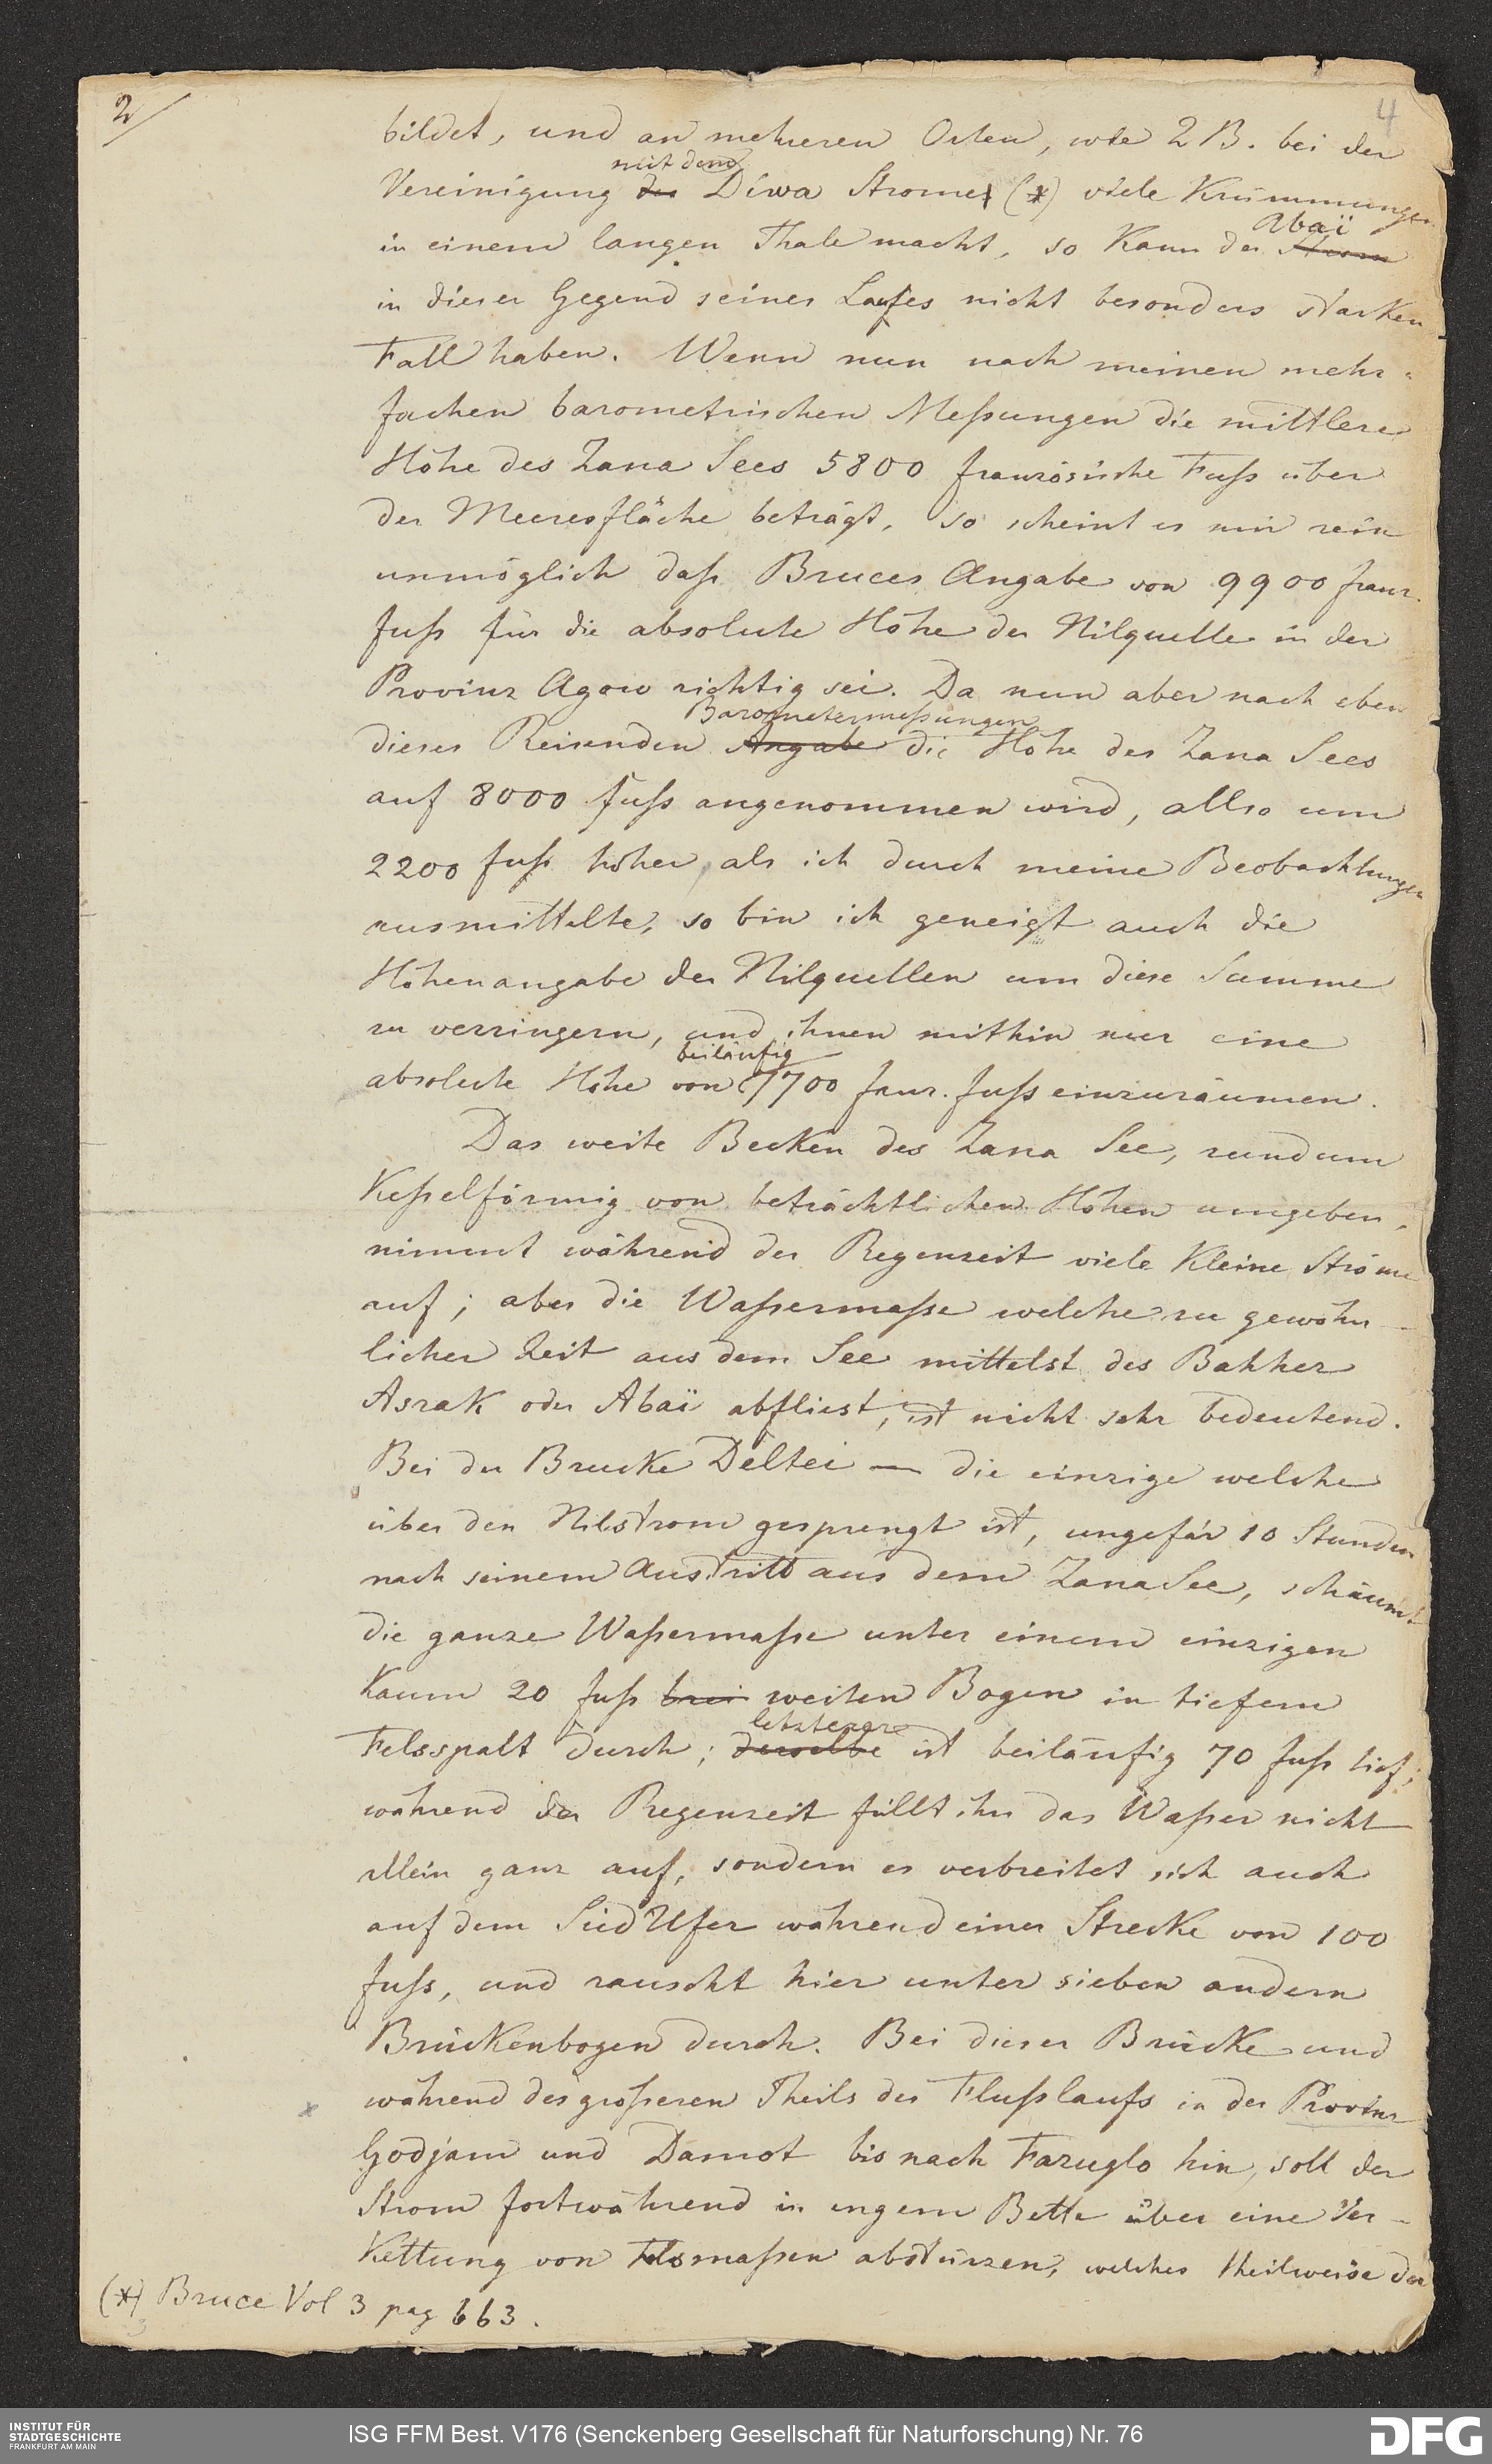 2/
4
bildet, und an mehreren Orten, wie Z B. bei der
mit dem
Vereinigung des Diwa Stromes (*) viele Krümmungen
Abaï
in einem langen Thale macht, so kann der Strom
in dieser Gegend seines Laufes nicht besonders starken
Fall haben. Wenn nun nach meinen mehr-
fachen barometrischen Meßungen die mittlere
Höhe des Zana Sees 5800 französische Fuß über
der Meeresfläche beträgt, so scheint es mir rein
unmöglich daß Bruces Angabe von 9900 franz.
fuß für die absolute Höhe der Nilquelle in der
Provinz Agow richtig sei. Da nun aber nach eben
Barometermeßungen
dieses Reisenden Angabe die Höhe des Zana Sees
auf 8000 fuß angenommen wird, allso um
2200 fuß höher, als ich durch meine Beobachtungen
ausmittelte, so bin ich geneigt auch die
Höhenangabe der Nilquellen um diese Summe
zu verringern, und ihnen mithin nur eine
beiläufig
absolute Höhe von 7700 franz. fuß einzuräumen.
Das weite Becken des Zana See, rund um
Keßelförmig von beträchtlichen Höhen umgeben,
nimmt während der Regenzeit viele kleine Ströme
auf; aber die Waßermaße welche zu gewöhn-
licher Zeit aus dem See mittelst des Bahher
Asrak oder Abaï abfliest, ist nicht sehr bedeutend.
Bei der Brucke Deltei — die einzige welche
über den Nilstrom gesprengt ist, ungefär 10 Stunden
nach seinem Austritt aus dem Zana See, schäumt
die ganze Waßermaße unter einem einzigen
Kaum 20 fuß brei weiten Bogen in tiefem
letzterer
Felsspalt durch; derselbe ist beiläufig 70 fuß tief;
während der Regenzeit füllt ihn das Waßer nicht
allein ganz auf, sondern es verbreitet sich auch
auf dem Süd Ufer während einer Strecke von 100
fuß, und rauscht hier unter sieben andern
Brückenbogen durch. Bei dieser Brücke und
während des großeren Theils des Flußlaufs in der Provinz
Godjam und Damot bis nach Fazuglo hin, soll der
Strom fortwährend in engem Bette über eine Ver-
kettung von Felsmaßen abstürzen, welches theilweise der
(*) Bruce Vol 3 pag 663.
3
INSTITUT FÜR
STADTGESCHICHTE
FRANKFURT AM MAIN
ISG FFM Best. V176 (Senckenberg Gesellschaft für Naturforschung) Nr. 76
DFG